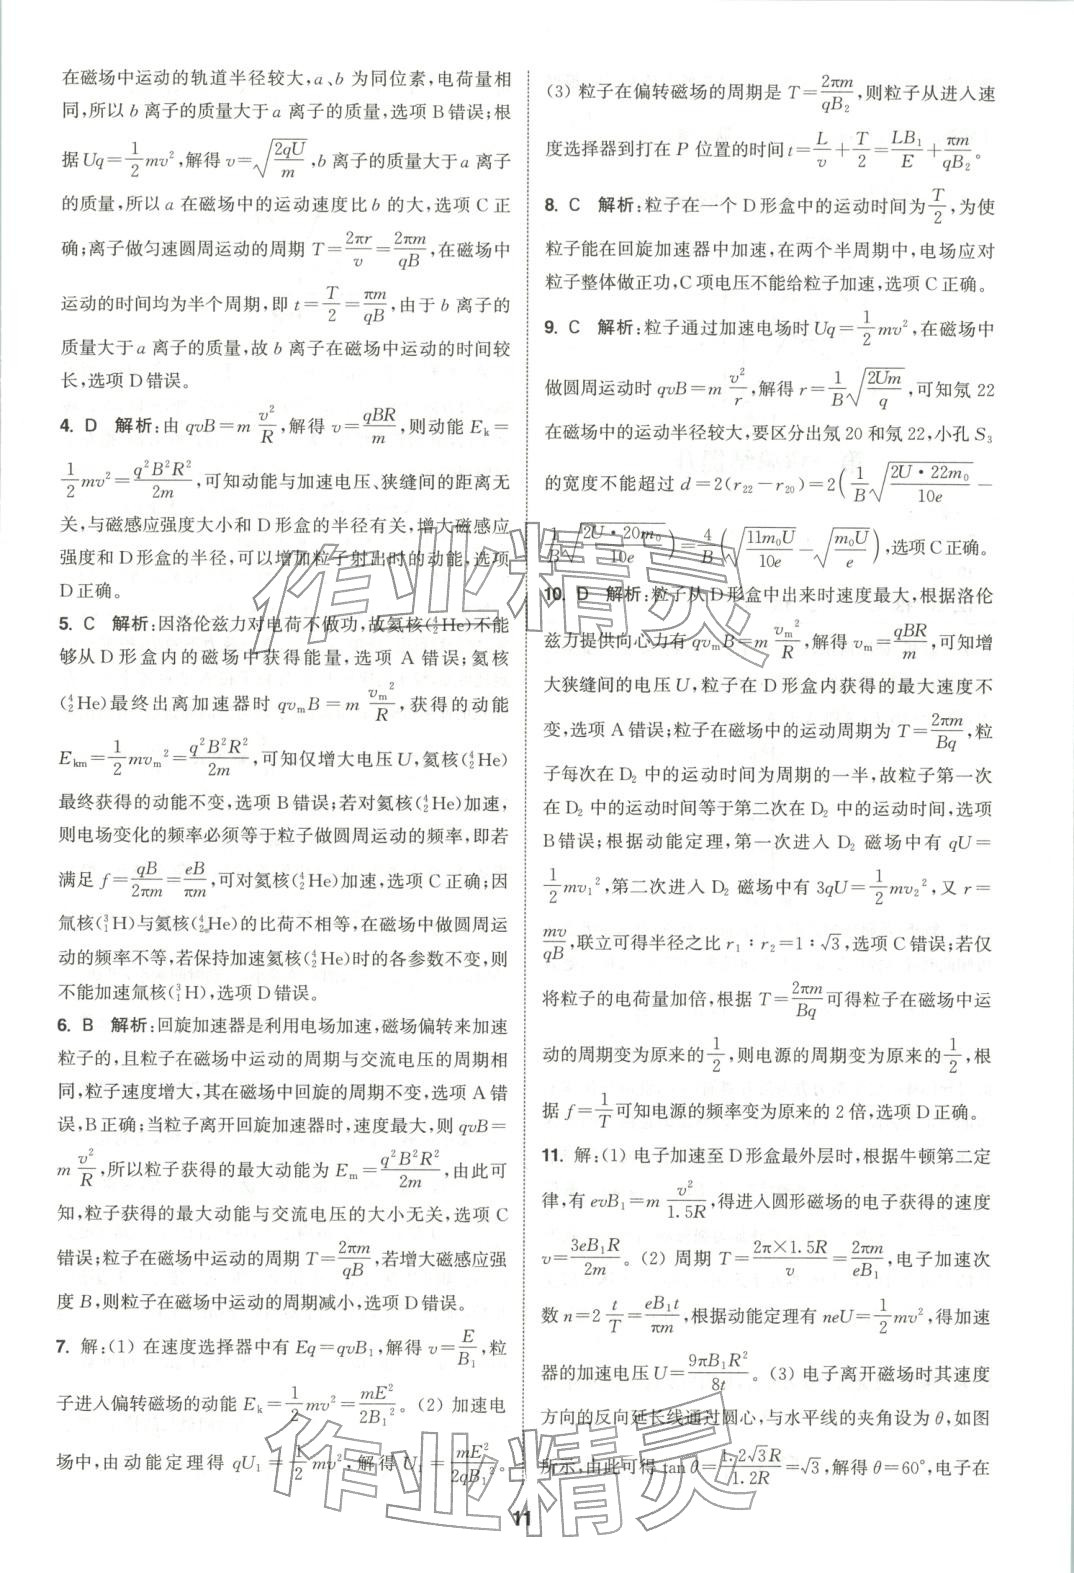 在磁场中运动的轨道半径较大,a、b 为同位素,电荷量相
同,所以 b 离子的质量大于 a 离子的质量,选项 B 错误;根
据 Uq=1/2 mv²,解得 v=√(2qU/m),b 离子的质量大于 a 离子
的质量,所以 a 在磁场中的运动速度比 b 的大,选项 C 正
确;离子做匀速圆周运动的周期 T=2πr/v=2πm/qB,在磁场中
运动的时间均为半个周期,即 t=T/2=πm/qB,由于 b 离子的
质量大于 a 离子的质量,故 b 离子在磁场中运动的时间较
长,选项 D 错误。
4. D 解析:由 qvB=m v²/R,解得 v=qBR/m,则动能 Eₖ=
1/2 mv²=q²B²R²/2m,可知动能与加速电压、狭缝间的距离无
关,与磁感应强度大小和 D 形盒的半径有关,增大磁感应
强度和 D 形盒的半径,可以增加粒子射出时的动能,选项
D 正确。
5. C 解析:因洛伦兹力对电荷不做功,故氦核(⁴₂He)不能
够从 D 形盒内的磁场中获得能量,选项 A 错误;氦核
(⁴₂He)最终出离加速器时 qvₘB=m vₘ²/R,获得的动能
Eₖₘ=1/2 mvₘ²=q²B²R²/2m,可知仅增大电压 U,氦核(⁴₂He)
最终获得的动能不变,选项 B 错误;若对氦核(⁴₂He)加速,
则电场变化的频率必须等于粒子做圆周运动的频率,即若
满足 f=qB/2πm=eB/πm,可对氦核(⁴₂He)加速,选项 C 正确;因
氚核(³₁H)与氦核(⁴₂He)的比荷不相等,在磁场中做圆周运
动的频率不等,若保持加速氦核(⁴₂He)时的各参数不变,则
不能加速氚核(³₁H),选项 D 错误。
6. B 解析:回旋加速器是利用电场加速,磁场偏转来加速
粒子的,且粒子在磁场中运动的周期与交流电压的周期相
同,粒子速度增大,其在磁场中回旋的周期不变,选项 A 错
误,B 正确;当粒子离开回旋加速器时,速度最大,则 qvB=
m v²/R,所以粒子获得的最大动能为 Eₘ=q²B²R²/2m,由此可
知,粒子获得的最大动能与交流电压的大小无关,选项 C
错误;粒子在磁场中运动的周期 T=2πm/qB,若增大磁感应强
度 B,则粒子在磁场中运动的周期减小,选项 D 错误。
7. 解:(1) 在速度选择器中有 Eq=qvB₁,解得 v=E/B₁,粒
子进入偏转磁场的动能 Eₖ=1/2 mv²=mE²/2B₁²。(2) 加速电
场中,由动能定理得 qU₁=1/2 mv²,解得 U₁=mE²/2qB₁²。
(3) 粒子在偏转磁场的周期是 T=2πm/qB₂,则粒子从进入速
度选择器到打在 P 位置的时间 t=L/v+T/2=LB₁/E+πm/qB₂。
8. C 解析:粒子在一个 D 形盒中的运动时间为 T/2,为使
粒子能在回旋加速器中加速,在两个半周期中,电场应对
粒子整体做正功,C 项电压不能给粒子加速,选项 C 正确。
9. C 解析:粒子通过加速电场时 Uq=1/2 mv²,在磁场中
做圆周运动时 qvB=m v²/r,解得 r=1/B √(2Um/q),可知氖 22
在磁场中的运动半径较大,要区分出氖 20 和氖 22,小孔 S₃
的宽度不能超过 d=2(r₂₂−r₂₀)=2(1/B √(2U·22m₀/10e)−
1/B √(2U·20m₀/10e))=4/B(√(11m₀U/10e)−√(m₀U/e)),选项 C 正确。
10. D 解析:粒子从 D 形盒中出来时速度最大,根据洛伦
兹力提供向心力有 qvₘB=m vₘ²/R,解得 vₘ=qBR/m,可知增
大狭缝间的电压 U,粒子在 D 形盒内获得的最大速度不
变,选项 A 错误;粒子在磁场中的运动周期为 T=2πm/Bq,粒
子每次在 D₂ 中的运动时间为周期的一半,故粒子第一次
在 D₂ 中的运动时间等于第二次在 D₂ 中的运动时间,选项
B 错误;根据动能定理,第一次进入 D₂ 磁场中有 qU=
1/2 mv₁²,第二次进入 D₂ 磁场中有 3qU=1/2 mv₂²,又 r=
mv/qB,联立可得半径之比 r₁∶r₂=1∶√3,选项 C 错误;若仅
将粒子的电荷量加倍,根据 T=2πm/Bq 可得粒子在磁场中运
动的周期变为原来的 1/2,则电源的周期变为原来的 1/2,根
据 f=1/T 可知电源的频率变为原来的 2 倍,选项 D 正确。
11. 解:(1) 电子加速至 D 形盒最外层时,根据牛顿第二定
律,有 evB₁=m v²/1.5R,得进入圆形磁场的电子获得的速度
v=3eB₁R/2m。(2) 周期 T=2π×1.5R/v=2πm/eB₁,电子加速次
数 n=2 t/T=eB₁t/πm,根据动能定理有 neU=1/2 mv²,得加速
器的加速电压 U=9πB₁R²/8t。(3) 电子离开磁场时其速度
方向的反向延长线通过圆心,与水平线的夹角设为 θ,如图
所示,由此可得 tan θ=1.2√3R/1.2R=√3,解得 θ=60°,电子在
11
作业精灵
作业精灵